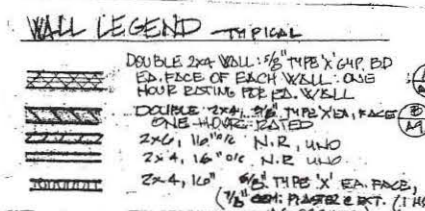 WALL LEGEND TYPICAL
DOUBLE 2x4 WALL: 5/8" TYPE 'X' GYP. BD
EA. FACE OF EACH WALL: ONE
HOUR RATING FOR EA. WALL
DOUBLE 2x4, 5/8" TYPE 'X' EA, FACE
ONE-HOUR-RATED
2x6, 16" o/c N.R, UNO
2x4, 16" o/c N.R UNO
2x4, 16" 5/8" TYPE 'X' EA. FACE,
(7/8" CEM. PLASTER @ EXT. (1 H